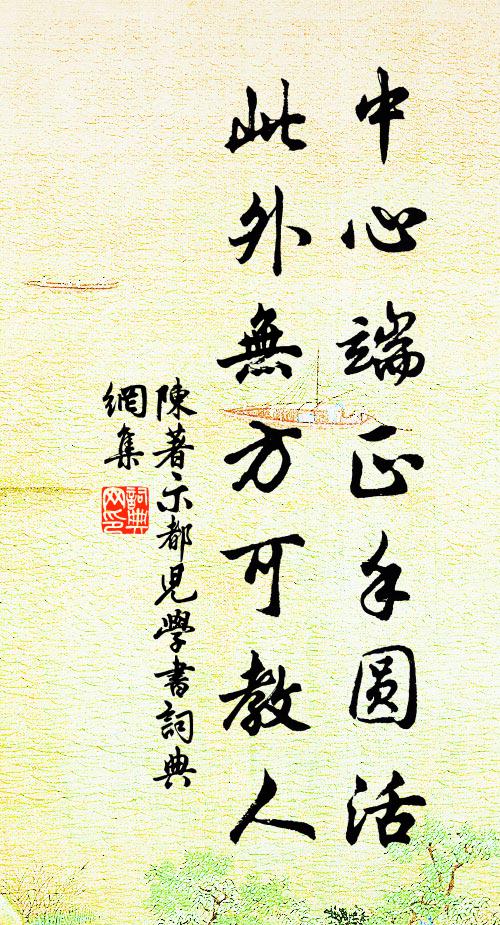 中心端正手圓活
此外無方可教人
陳著示都兒學書詞典
網集
詞典
网印